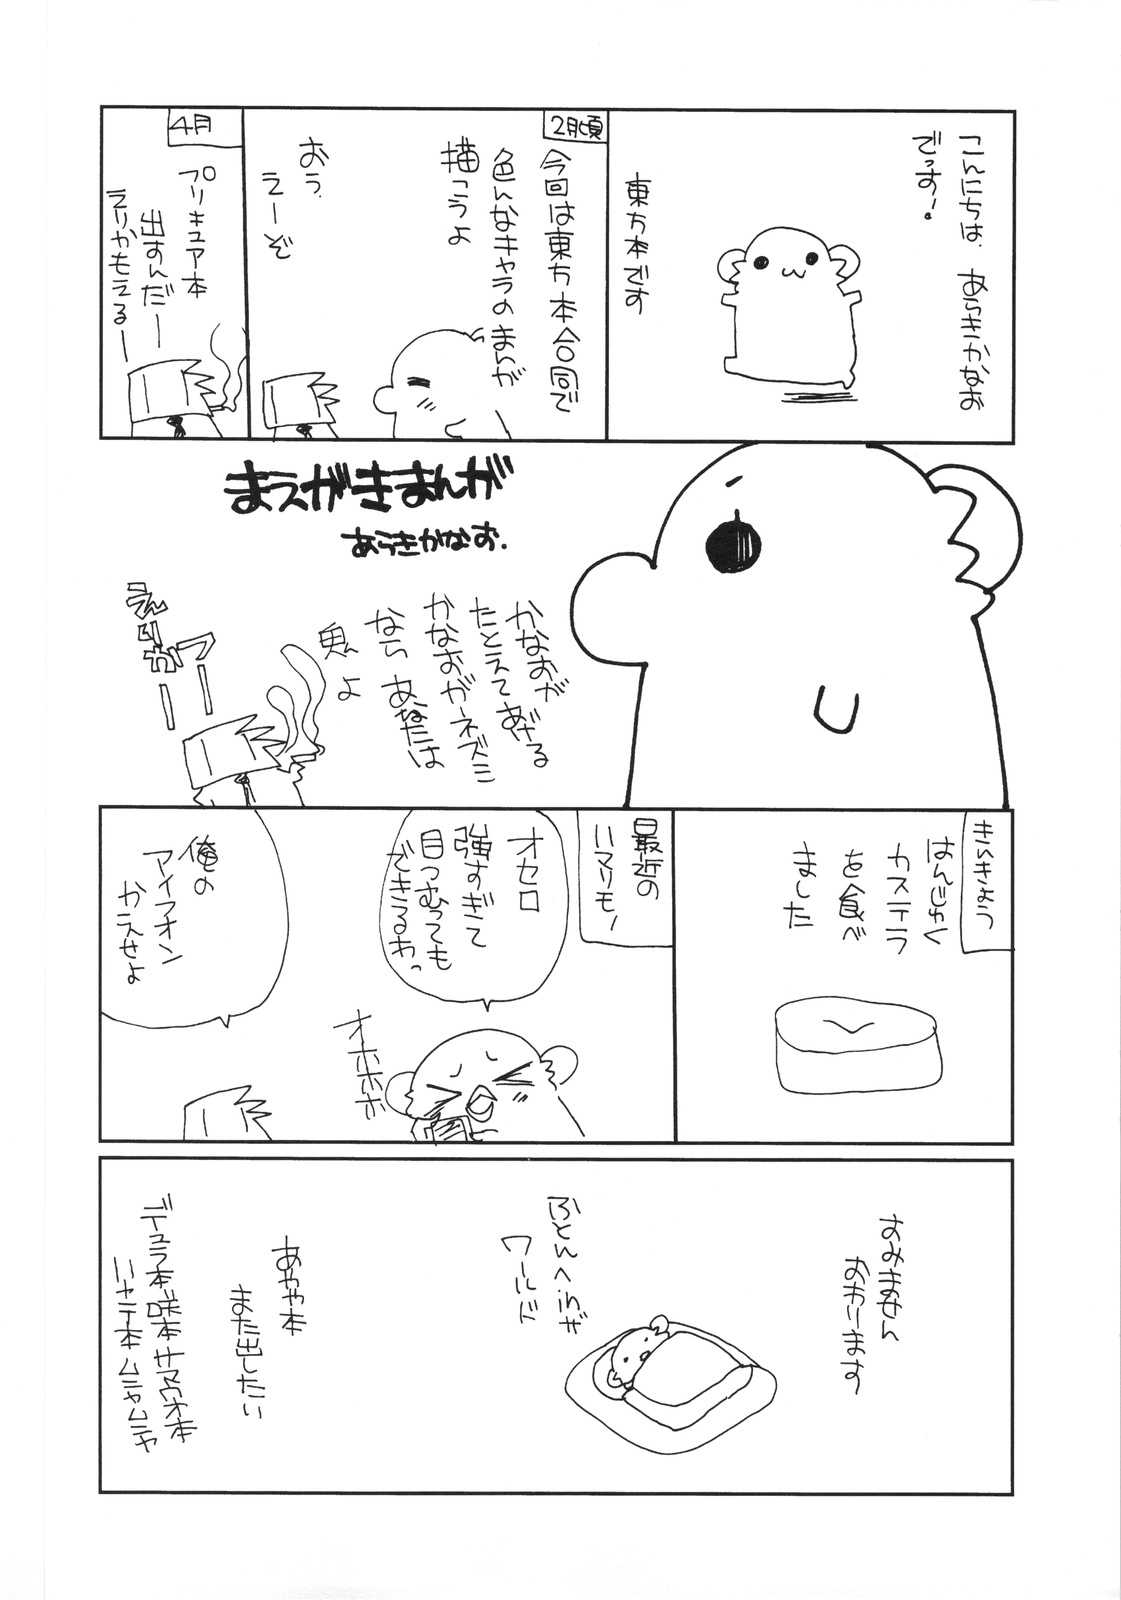 こんにちは、あらきかなお
でっす!
東方本です
2月頃
今回は東方本合同で
色んなキャラのまんが
描こうよ
おう、
えーぞ
4月
プリキュア本
出すんだー
えりかもえるー
まえがきまんが
あらきかなお.
かなおが
たとえてあげる
かなおがネズミ
なら あなたは
魚よ
えりかー
つー
きんきょう
はんじゅく
カステラ
を食べ
ました
最近の
ハマリモノ
オセロ
強すぎて
目つむっても
できるわっ
オホホホ
俺の
アイフォン
かえせよ
すみません
おわります
ふとんへinザ
ワールド
あやや本
また出したい
デュラ本 咲本 サマウォ本
ハャテ本 ムニャムニャ